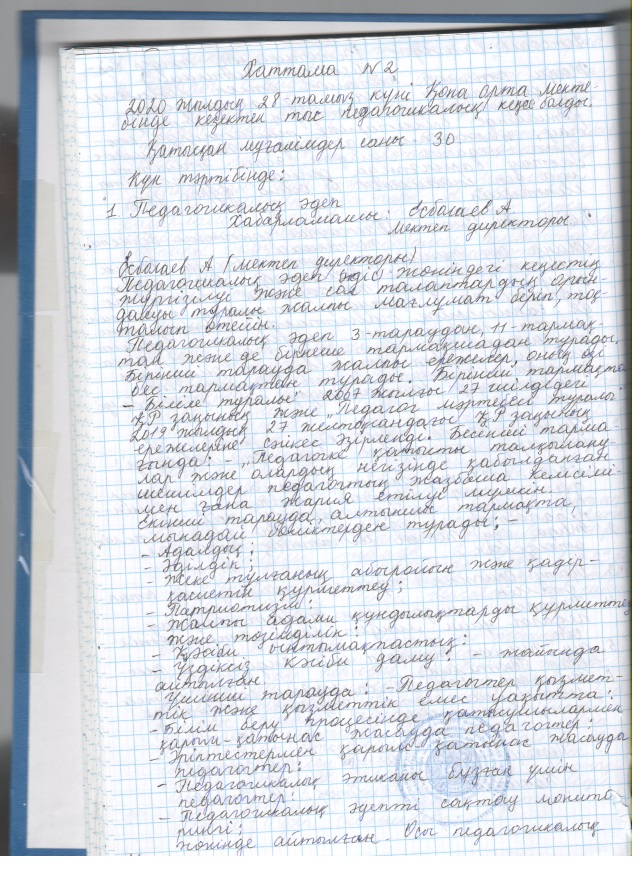 Хаттама N 2
2020 жылдың 28-тамыз күні Қопа орта мекте-
бінде кезектен тыс педагогикалық кеңес болды.
Қатысқан мұғалімдер саны - 30
Күн тәртібінде:
1 Педагогикалық әдеп
Хабарламашы: Есбалаев А
мектеп директоры.
Есбалаев А (мектеп директоры)
Педагогикалық әдеп жөніндегі кеңестің
жүргізілуі және сол талаптардың орын-
далуы туралы жалпы мағлұмат беріп, тоқ-
талып өтейін.
Педагогикалық әдеп 3-тараудан, 11-тармақ-
тан және де бірнеше тармақшадан тұрады,
Бірінші тарауда жалпы ережелер, оның өзі
бес тармақтан тұрады. Бірінші тармақта
- Білім туралы" 2007 жылғы 27 шілдедегі
ҚР заңының және „Педагог мәртебесі туралы
2019 жылдың 27 желтоқсандағы ҚР заңының
ережелеріне сәйкес әзірленді. Бесінші тарма-
ғында: - „Педагогке қатысты талқылану-
лар және олардың негізінде қабылданған
шешімдер педагогтың жазбаша келісімі-
мен ғана жария етілуі мүмкін.
Екінші тарауда, алтыншы тармақта,
мынадай бөліктерден тұрады; -
- Адалдық;
- Әділдік;
- Жеке тұлғаның абыройын және қадір-
қасиетін құрметтеу;
- Патриотизм:
- Жалпы адами құндылықтарды құрметтеу
және төзімділік:
- Кәсіби ынтымақтастық:
- Үздіксіз кәсіби даму: - жайында
айтылған
Үшінші тарауда: - Педагогтер қызмет-
тік және қызметтік емес уақытта:
- Білім беру процесінде қатысушылармен
қарым-қатынас жасауда педагогтер:
- Әріптестермен қарым-қатынас жасауда
педагогтер:
- Педагогикалық этиканы бұзған үшін
педагогтер:
- Педагогикалық әдепті сақтау монито
рингі:
жөнінде айтылған. Осы педагогикалық